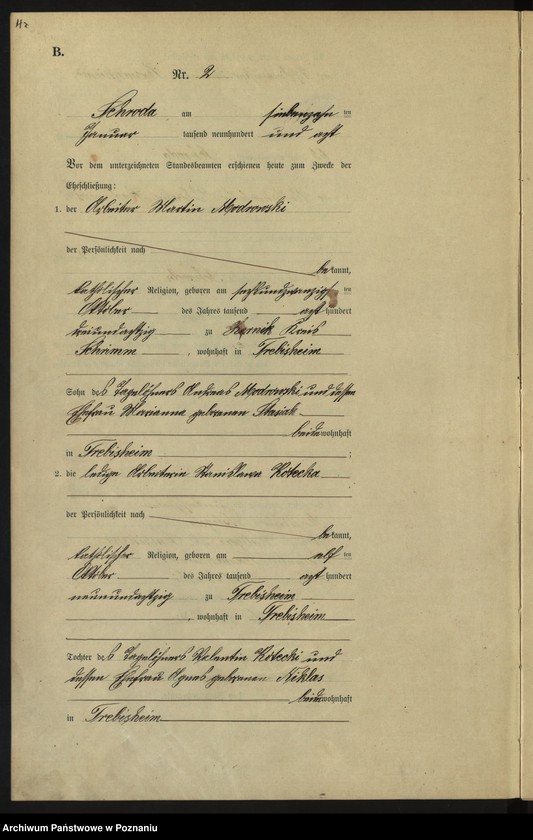 B.
Nr. 2
Schroda, am siebenzehn ten
Januar tausend neunhundert und acht
Vor dem unterzeichneten Standesbeamten erschienen heute zum Zwecke der
Eheschließung:
1. der Arbeiter Martin Modrowski
der Persönlichkeit nach
bekannt,
katholischer Religion, geboren am sechsundzwanzigs ten
Oktober des Jahres tausend acht hundert
dreiundachtzig zu Kurnik Kreis
Schrimm, wohnhaft in Trebisheim
Sohn des Tagelöhners Andreas Modrowski und dessen
Ehefrau Marianna geborenen Stasiak
beide wohnhaft
in Trebisheim;
2. die ledige Arbeiterin Stanislawa Kotecka
der Persönlichkeit nach
bekannt,
katholischer Religion, geboren am elf ten
Oktober des Jahres tausend acht hundert
neunundachtzig zu Trebisheim
, wohnhaft in Trebisheim
Tochter des Tagelöhners Valentin Kotecki und
dessen Ehefrau Agnes geborenen Niklas
beide wohnhaft
in Trebisheim
Archiwum Państwowe w Poznaniu